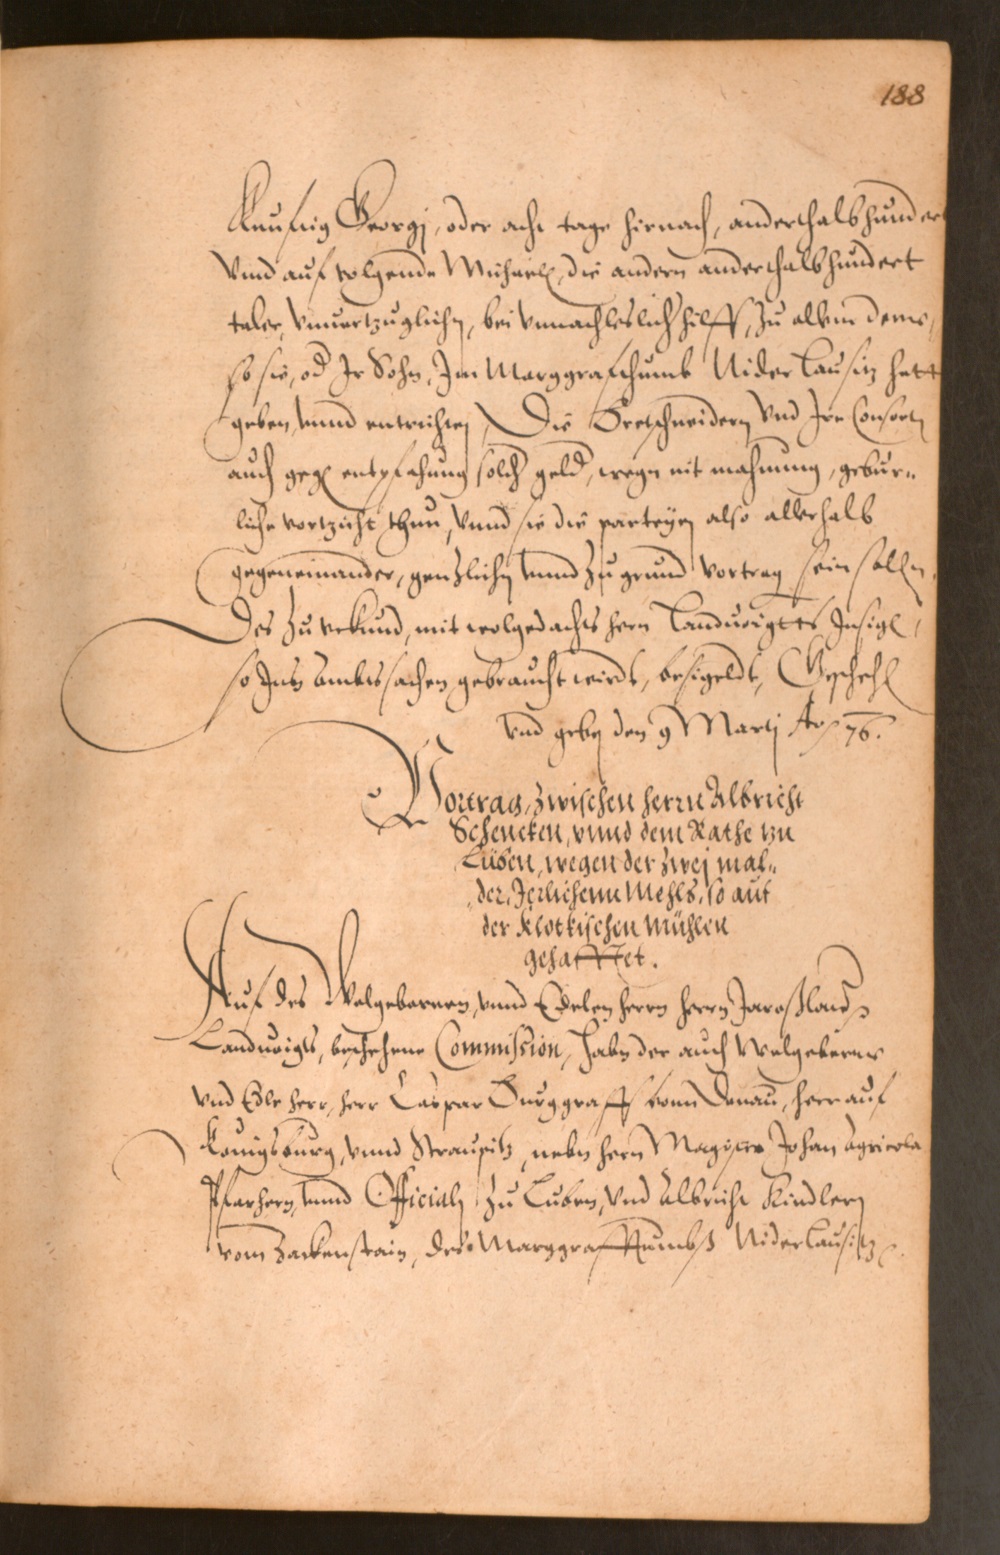 188
Kunftig Georgj, oder acht tage hirnach, anderthalbhundert
Vnnd auf volgende Michael, die andern anderthalbhundert
taler, vnuertzuglichen, bei vnnachleslicher hilff, zu allem deme,
so sie, od Ir Sohn, Im Marggrafthumb Nider Lausitz hett
geben, vnnd entrichten, Die Bretschneidern vnd Ire Consorten
auch gegen entpfahung solch geld, wegen mahnung, gebur-
liche vortzicht thun, vnnd sie die parteyen also allerhalb
gegeneinander, genzlichen vnnd zu grund vortragen sein sollen.
Des zu vrkund, mit wolgedachts hern Landuoigtts Insigel,
so Inn ambtssachen gebraucht wirdt, besigeldt, Geschehen
vnd geben den 9 Martj Ao 76.
Vortrag, zwischen herrn Albricht
Schencken, vnnd dem Rathe zu
Lüben, wegen der zwei mal-
der, Jerlichenn Mehls, so auf
der Klotkischen Mühlen
gehafftet.
Auf des Wolgebornen, vnnd Edelen herrn herrn Jaroßlauen
Landuoigts, beschehene Commission, haben der auch Wolgeborner
vnd Edle herr, herr Caspar Burggraff vonn Donau, herr auf
Konigsburg, vnnd Straupitz, neben hern Magister Johan Agricola
Pfarhern, vnnd Officialn zu Luben, vnd Albricht Kindlern
vom Zackenstain, des Marggraffthumbß Nider Lausitz